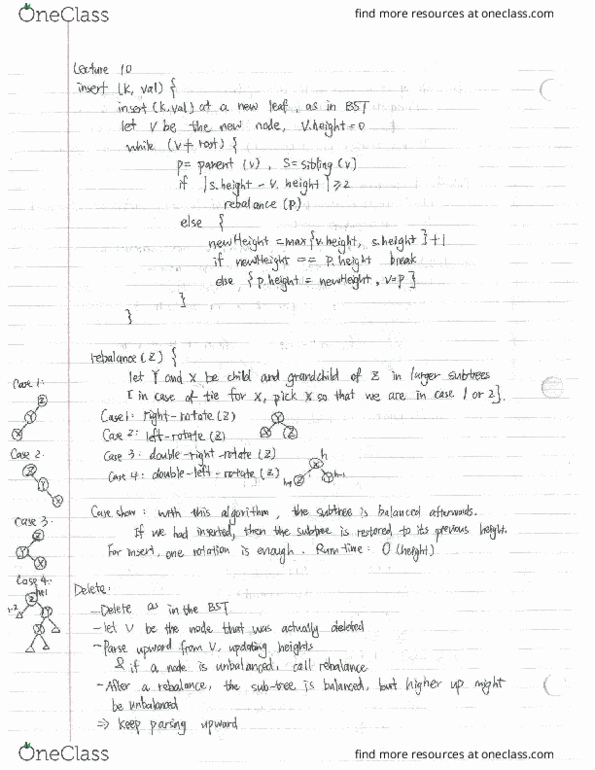 OneClass
find more resources at oneclass.com
Lecture 10
insert (k, val) {
insert (k, val) at a new leaf, as in BST
let V be the new node, V.height = 0
while (v ≠ root) {
p = parent (v), S = sibling (v)
if |s.height - v.height| ≥ 2
rebalance (p)
else {
newHeight = max{v.height, s.height} + 1
if newHeight == p.height break
else {p.height = newHeight, v=p}
}
}
rebalance (Z) {
let Y and X be child and grandchild of Z in larger subtrees
[in case of tie for X, pick X so that we are in case 1 or 2].
Case 1: right-rotate (Z)
Case 2: left-rotate (Z)
Case 3: double-right-rotate (Z)
Case 4: double-left-rotate (Z)
Y
X Z
X h
h-1
Case 1:
Z
Y
X
Case 2:
Z
Y
X
Case 3:
Z
Y
X
Case 4:
h+1
Z
Y
X
Case show: with this algorithm, the subtree is balanced afterwards.
If we had inserted, then the subtree is restored to its previous height.
For insert, one rotation is enough. Run-time: O(height)
Delete:
- Delete as in the BST
- let V be the node that was actually deleted
- Parse upward from V, updating heights
& if a node is unbalanced, call rebalance
- After a rebalance, the sub-tree is balanced, but higher up might
be unbalanced
⇒ keep parsing upward
OneClass
find more resources at oneclass.com